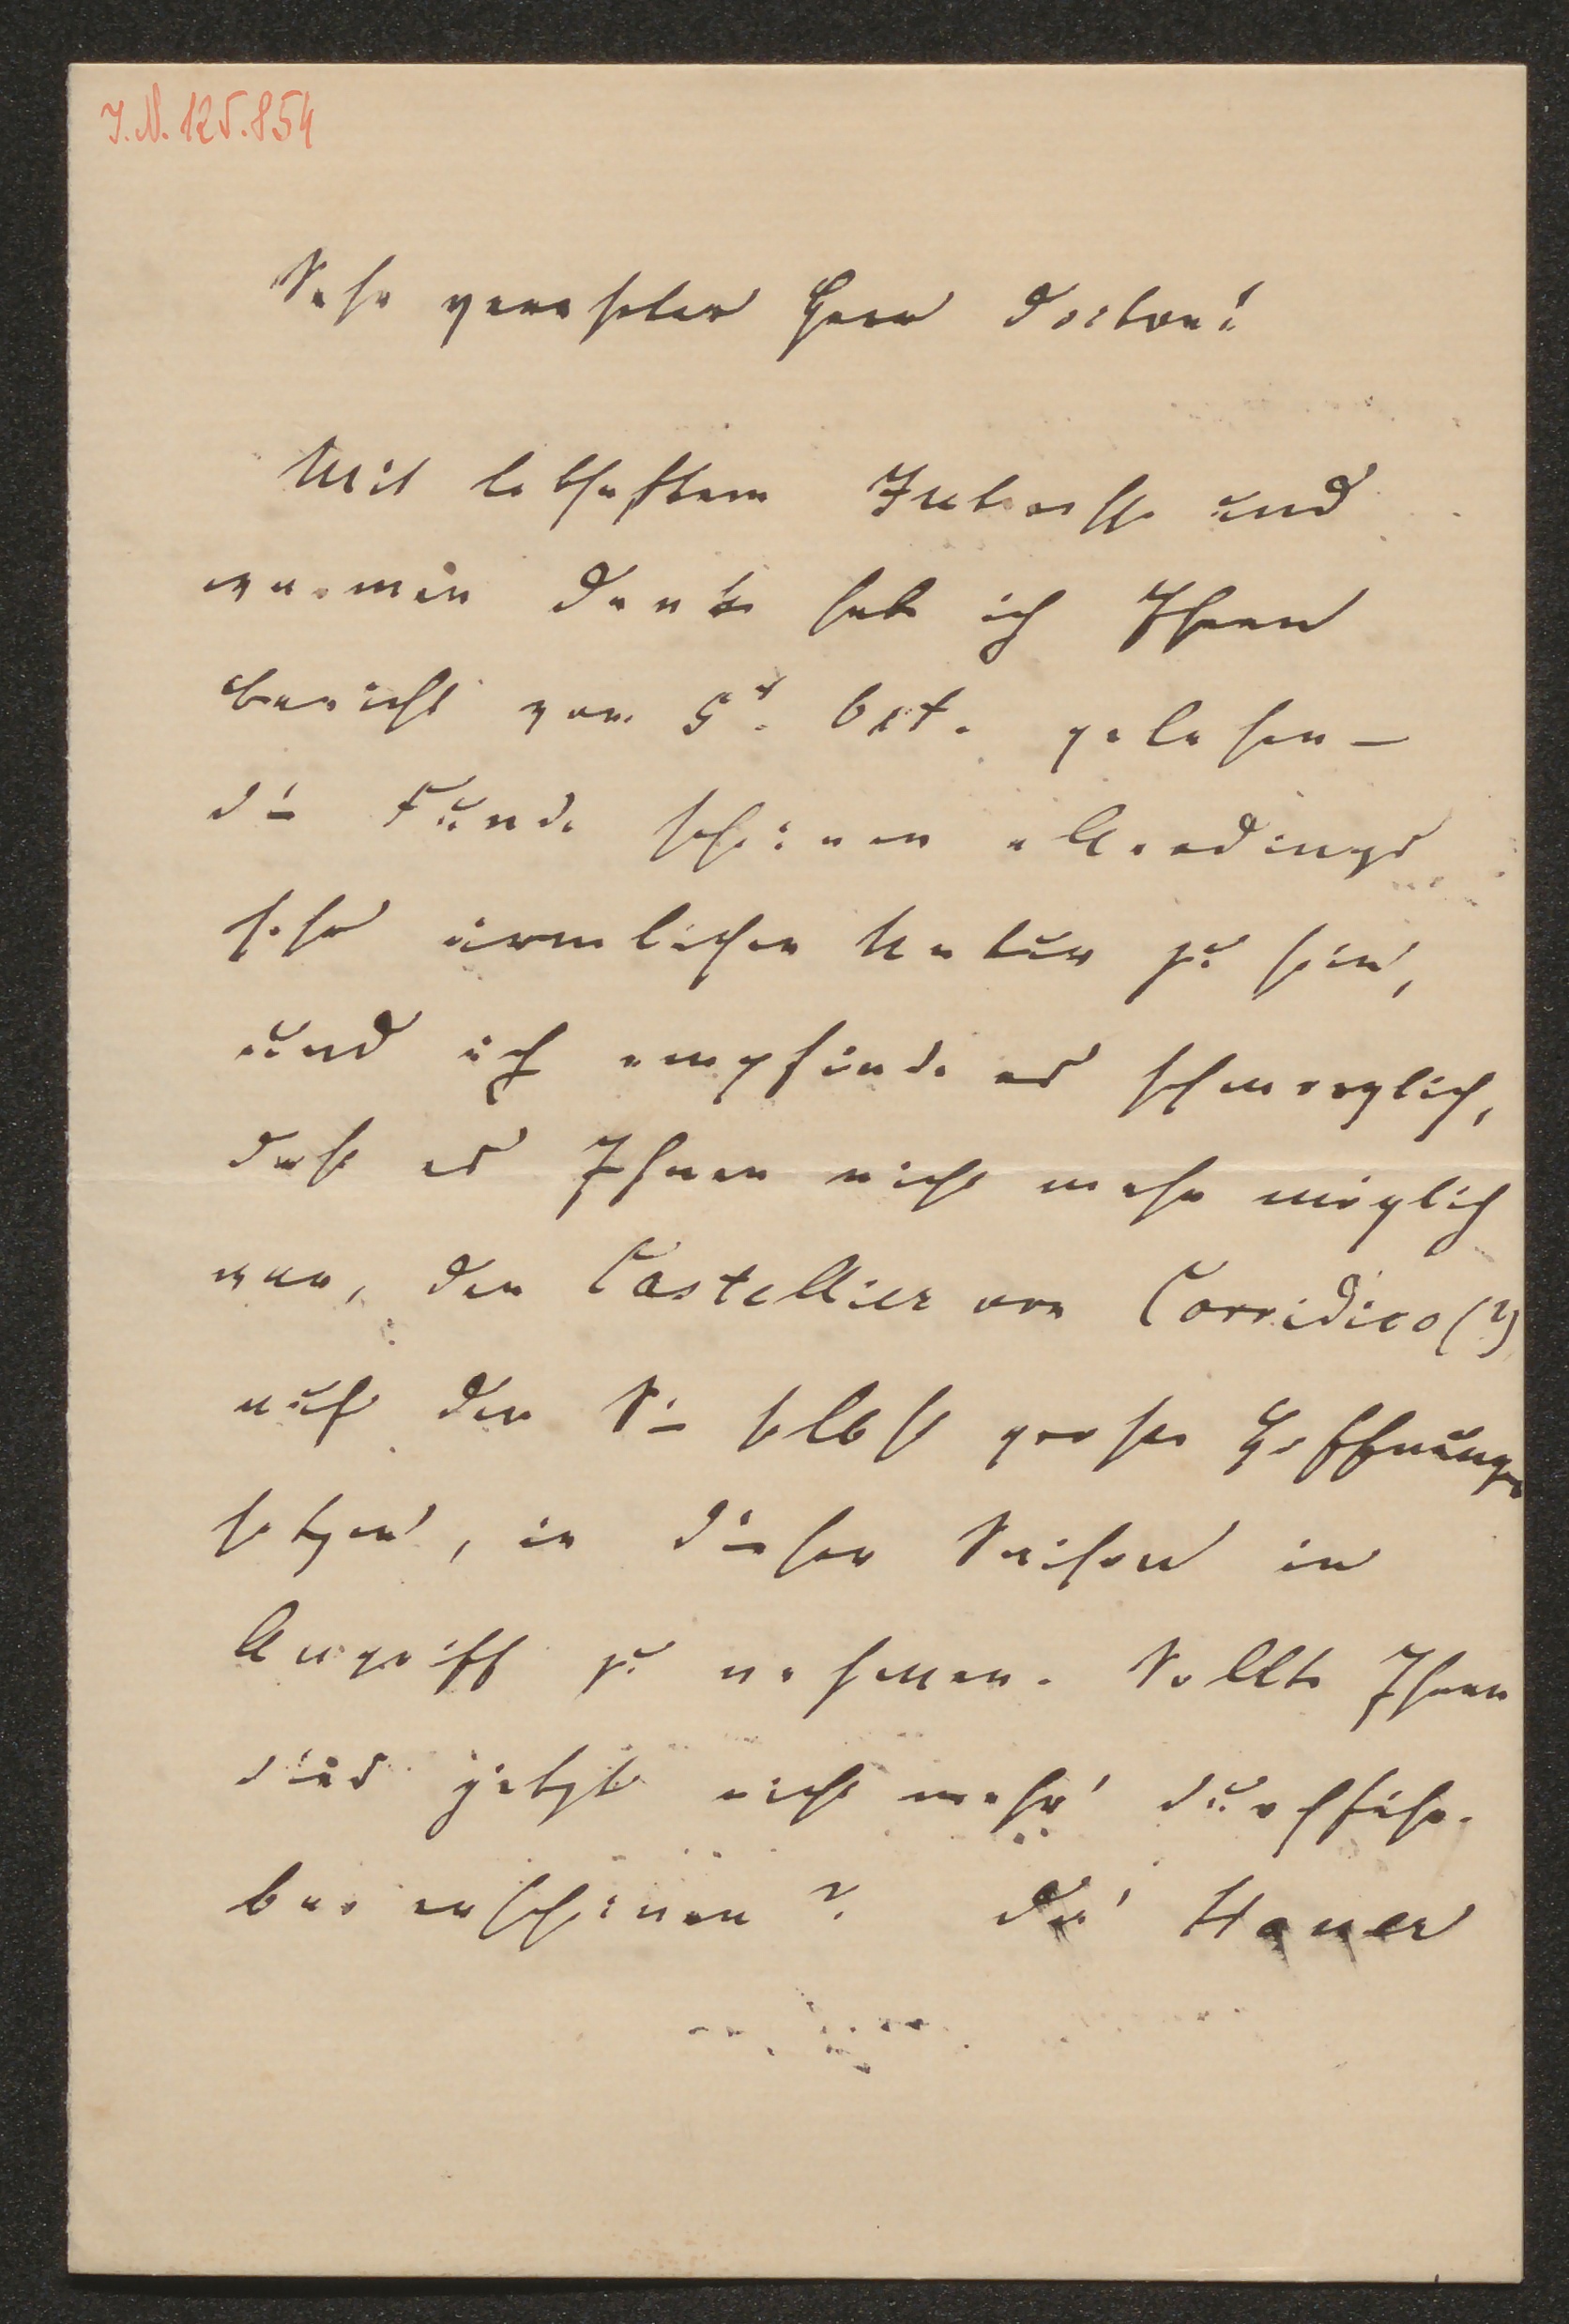 J.N. 125.854
Sehr geehrter Herr Doctor!
Mit lebhaftem Interesse und
warmem Danke hab ich Ihren
Bericht vom 5t. Oct. gelesen –
die Funde scheinen allerdings
sehr ärmlicher Natur zu sein,
und ich empfinde es schmerzlich,
dass es Ihnen nicht mehr möglich
war, den Castellier von Corridico (?)
auf den Sie selbst grosse Hoffnungen
setzen, in dieser Saison in
Angriff zu nehmen. Sollte Ihnen
dies jetzt nicht mehr durchführ-
bar erscheinen? Dr. Hauer